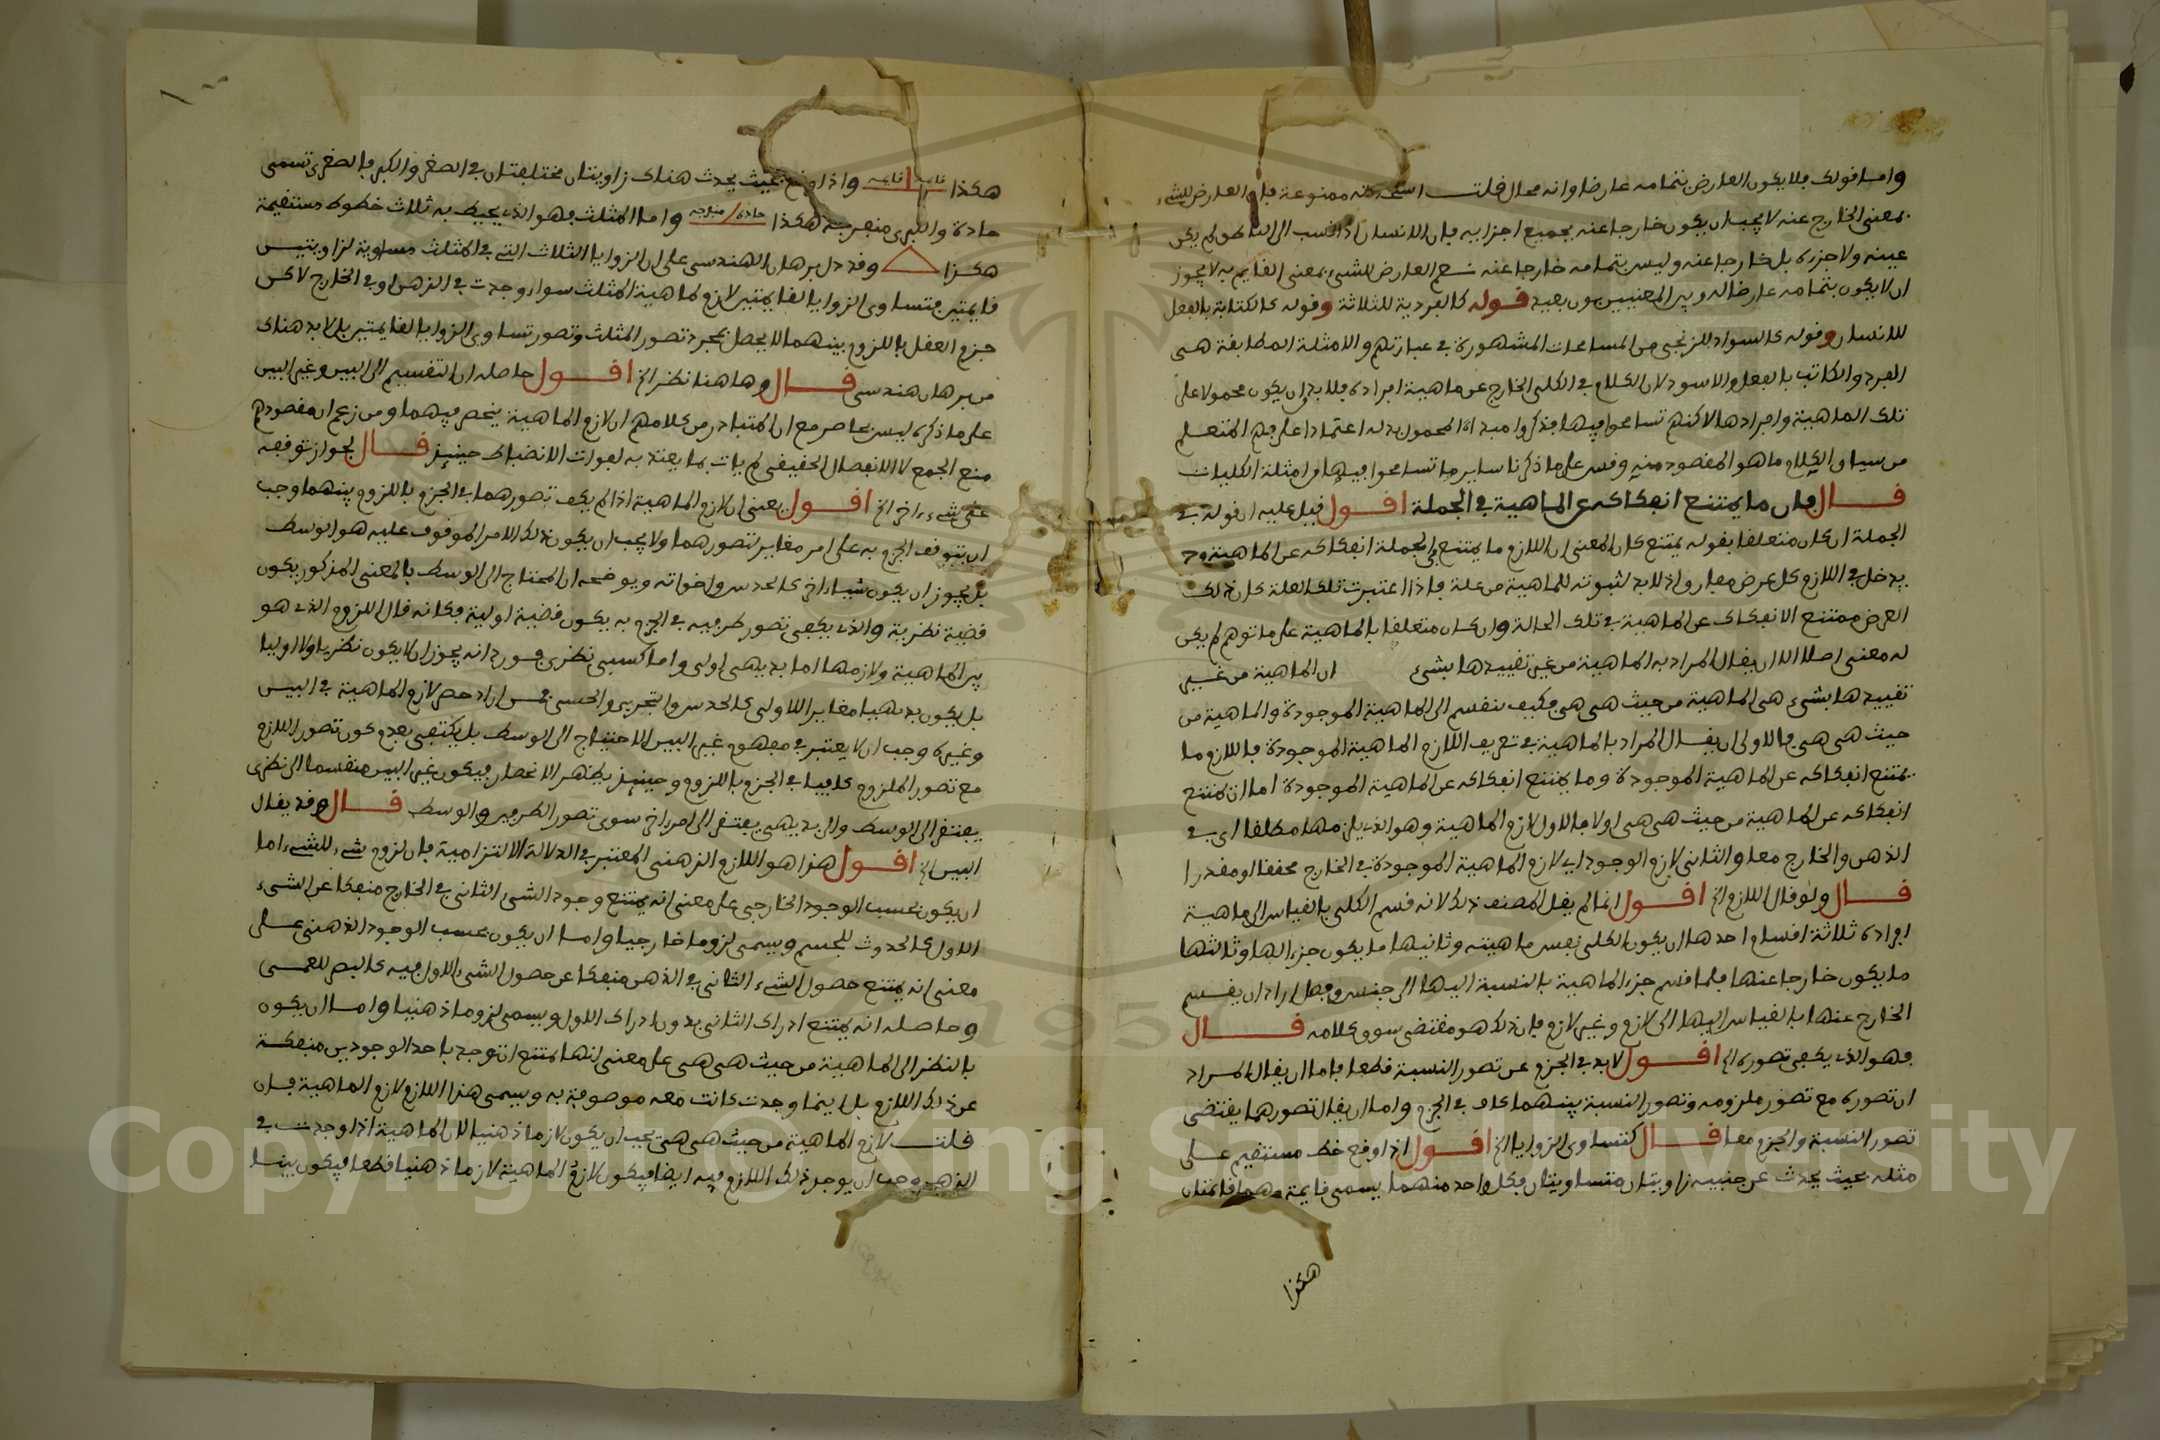 واما قولك فلا يكون العارض بتمامه عارضا وانه محال قلت استحالته ممنوعة فان العارض للشيء
بمعنى الخارج عنه لا يجب ان يكون خارجا عنه بجميع اجزايه فان الانسان اذا نسب الى الناطق لم يكن
عينه ولا جزءه بل خارجا عنه وليس بتمامه خارجا عنه نعم العارض للشيء بمعنى القايم به لا يجوز
ان لا يكون بتمامه عارضا له وبين المعنيين بون بعيد قوله كالفردية للثلاثة وقوله كالكتابة بالفعل
للانسان وقوله كالسواد للزنجي من المسامحات المشهورة في عباراتهم والامثلة المطابقة هي
الفرد والكاتب بالفعل والاسود لان الكلام في الكلي الخارج عن ماهية افراده فلا بد ان يكون محمولا على
تلك الماهية وافرادها لاكنهم تسامحوا فيها فذكروا مبدا المحمول بدله اعتمادا على فهم المتعلم
من سياق الكلام ما هو المقصود منه وقس على ما ذكرنا ساير ما تسامحوا فيها من امثلة الكليات
قال فان ما يمتنع انفكاكه عن الماهية في الجملة اقول قيل عليه ان قوله في
الجملة ان كان متعلقا بقوله يمتنع كان المعنى ان اللازم ما يمتنع في الجملة انفكاكه عن الماهية وح
يدخل في اللازم كل عرض مفارق اذ لا بد لثبوته للماهية من علة فاذا اعتبرت تلك العلة كان ذلك
العرض ممتنع الانفكاك عن الماهية في تلك الحالة وان كان متعلقا بالماهية على ما توهم لم يكن
له معنى اصلا الا ان يقال المراد به الماهية من غير تقييدها بشيء ان الماهية من غير
تقييدها بشيء هي الماهية من حيث هي هي فكيف تنقسم الى الماهية الموجودة والماهية من
حيث هي هي فالاولى ان يقال المراد بالماهية في تعريف اللازم الماهية الموجودة فاللازم ما
يمتنع انفكاكه عن الماهية الموجودة وما يمتنع انفكاكه عن الماهية الموجودة اما ان يمتنع
انفكاكه عن الماهية من حيث هي هي اولا فالاول لازم الماهية وهو الذي يلزمها مطلقا اي في
الذهن والخارج معا والثاني لازم الوجود اي لازم الماهية الموجودة في الخارج محققا او مقدرا
قال ولو قال اللازم الخ اقول انما لم يقل المصنف ذلك لانه قسم الكلي بالقياس الى ماهية
افراده ثلاثة اقسام احدها ان يكون الكلي نفس ماهيته وثانيها ما يكون جزءا لها وثالثها
ما يكون خارجا عنها فلما قسم جزء الماهية بالنسبة اليها الى جنس وفصل اراد ان يقسم
الخارج عنها بالقياس اليها الى لازم وغير لازم فان ذلك هو مقتضى سوق كلامه قال
فهو الذي يكفي تصوره الخ اقول لا بد في الجزم عن تصور النسبة قطعا فاما ان يقال المراد
ان تصوره مع تصور ملزومه وتصور النسبة بينهما كاف في الجزم واما ان يقال تصورهما يقتضي
تصور النسبة والجزم معا قال كتساوي الزوايا الخ اقول اذا وقع خط مستقيم على
مثله بحيث يحدث عن جنبيه زاويتان متساويتان فكل واحد منهما يسمى قايمة وهما قايمتان
هكذا
هكذا قايمة قايمة واذا وقع بحيث يحدث هناك زاويتان مختلفتان في الصغر والكبر فالصغرى تسمى
حادة والكبرى منفرجة هكذا حادة منفرجه واما المثلث فهو الذي يحيط به ثلاث خطوط مستقيمة
هكذا وقد دل برهان الهندسي على ان الزوايا الثلاث التي في المثلث مساوية لزاويتين
قايمتين فتساوي الزوايا القايمتين لازم لماهية المثلث سواء وجدت في الذهن او في الخارج لاكن
جزم العقل باللزوم بينهما لا يحصل بمجرد تصور المثلث وتصور تساوي الزوايا القايمتين بل لا بد هناك
من برهان هندسي قال وهاهنا نظر الخ اقول حاصله ان التقسيم الى البين وغير البين
على ما ذكره ليس بحاصر مع ان المتبادر من كلامهم ان لازم الماهية ينحصر فيهما ومن زعم ان مقصودهم
منع الجمع لا الانفصال الحقيقي لم يات بما يعتد به لفوات الانضباط حينيذ قال لجواز توقفه
على شيء اخر الخ اقول يعني ان لازم الماهية اذا لم يكف تصورهما في الجزم باللزوم بينهما وجب
ان يتوقف الجزم به على امر مغاير لتصورهما ولا يجب ان يكون ذلك الامر الموقوف عليه هو الوسط
بل يجوز ان يكون شيئا اخر كالحدس واخواته ويوضحه ان المحتاج الى الوسط بالمعنى المذكور يكون
قضية نظرية والذي يكفي تصور طرفيه في الجزم به يكون قضية اولية فكانه قال اللزوم الذي هو
بين الماهية ولازمها اما بديهي اولي واما كسبي نظري فورد انه يجوز ان لا يكون نظريا ولا اوليا
بل يكون بديهيا مغايرا للاولي كالحدس والتجربي والحسي فمن اراد حصر لازم الماهية في البين
وغيره وجب ان لا يعتبر في مفهوم غير البين الاحتياج الى الوسط بل يكتفي بعدم كون تصور اللازم
مع تصور الملزوم كافيا في الجزم باللزوم وحينيذ يظهر الانحصار فيكون غير البين منقسما الى نظري
يفتقر الى الوسط والى بديهي يفتقر الى امر اخر سوى تصور الطرفين والوسط قال وقد يقال
البين الخ اقول هذا هو اللازم الذهني المعتبر في الدلالة الالتزامية فان لزوم شيء للشيء اما
ان يكون بحسب الوجود الخارجي على معنى انه يمتنع وجود الشيء الثاني في الخارج منفكا عن الشيء
الاول كالحدوث للجسم ويسمى لزوما خارجيا واما ان يكون بحسب الوجود الذهني على
معنى انه يمتنع حصول الشيء الثاني في الذهن منفكا عن حصول الشيء الاول فيه كالبصر للعمى
وحاصله انه يمتنع ادراك الثاني بدون ادراك الاول ويسمى لزوما ذهنيا واما ان يكون
بالنظر الى الماهية من حيث هي هي على معنى انها يمتنع ان توجد باحد الوجودين منفكة
عن ذلك اللازم بل اينما وجدت كانت معه موصوفة به ويسمى هذا اللازم لازم الماهية فان
قلت لازم الماهية من حيث هي هي يجب ان يكون لازما ذهنيا لان الماهية اذا وجدت في
الذهن وجب ان يوجد ذلك اللازم فيه ايضا فيكون لازم الماهية لازما ذهنيا قطعا فيكون بينا
Copyright © King Saud University
1957